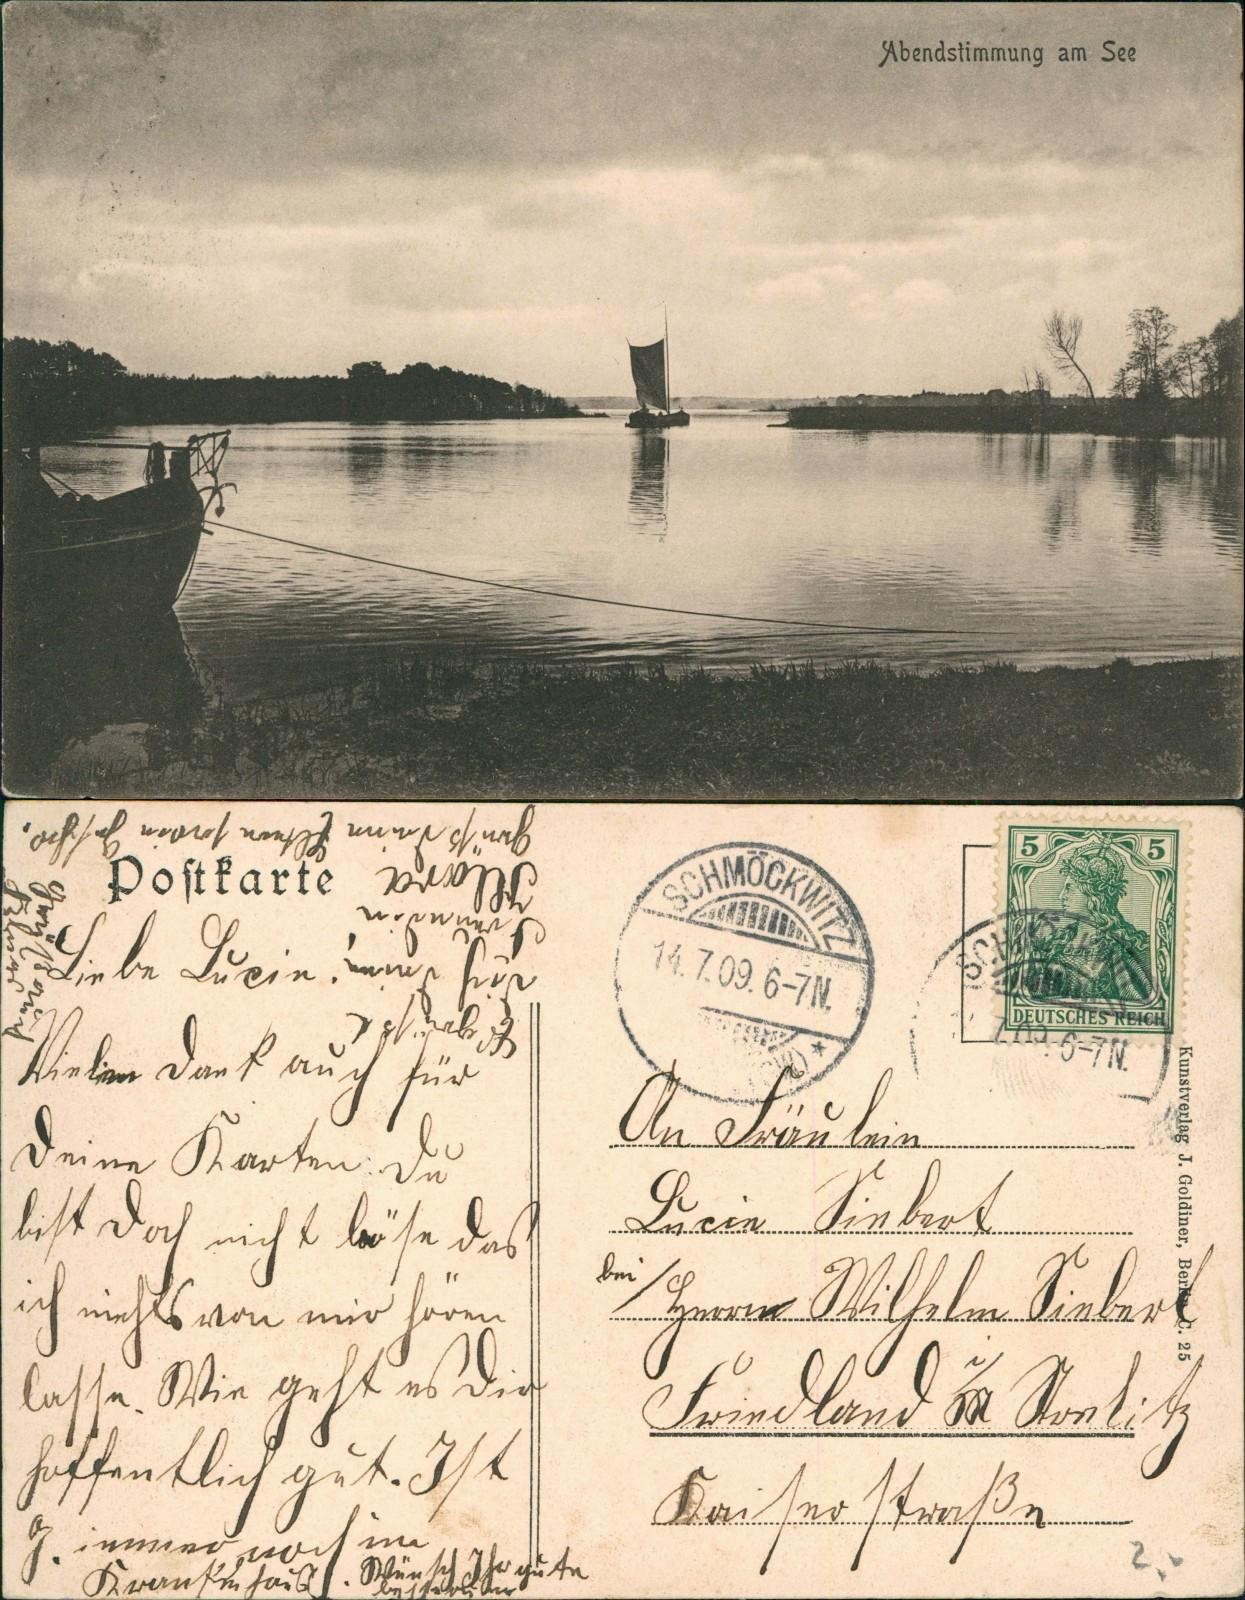 Abendstimmung am See
Postkarte
Liebe Lucie!
Vielen Dank auch für
Deine Karten. Du
bist doch nicht böse das
ich nichts von mir hören
lasse. Wie geht es Dir
hoffentlich gut. Ist
G. immer noch im
Krankenhaus. Wünsch Ihr gute
besserung
dich deine
Freundin
Klara
Grüß deine Eltern sowie
SCHMÖCKWITZ
14.7.09. 6-7N.
5 5
DEUTSCHES REICH
7.09. 6-7N.
An Fräulein
Lucie Siebert
bei / Herrn Wilhelm Siebert
Friedland i/M Strelitz
Kaiserstraße
Kunstverlag J. Goldiner, Berlin C. 25